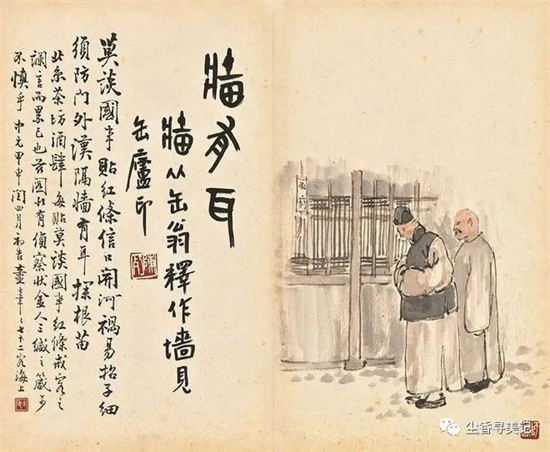 牆有耳
牆从缶翁釋作墙見
缶廬印
莫談國事貼紅條信口開河禍易招子細
須防門外漢隔牆有耳探根苗
此系茶坊酒肆每貼莫談國事紅條戒客之
讕言而累己也若有偵察狀金人三緘之箴可
不慎乎 甲申閏四月初吉七十二客海上
尘香寻美记